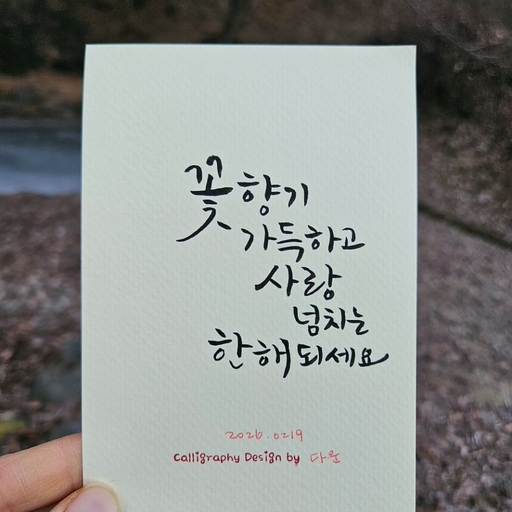 꽃향기
가득하고
사랑
넘치는
한해되세요
2026.0219
Calligraphy Design by 다온